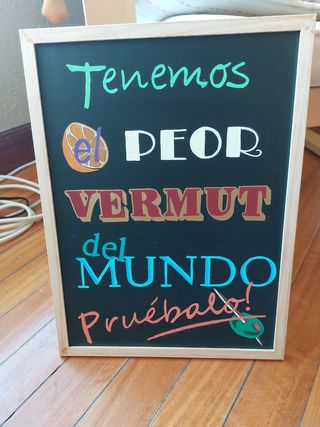 Tenemos
el PEOR
VERMUT
del
MUNDO
Pruébalo!